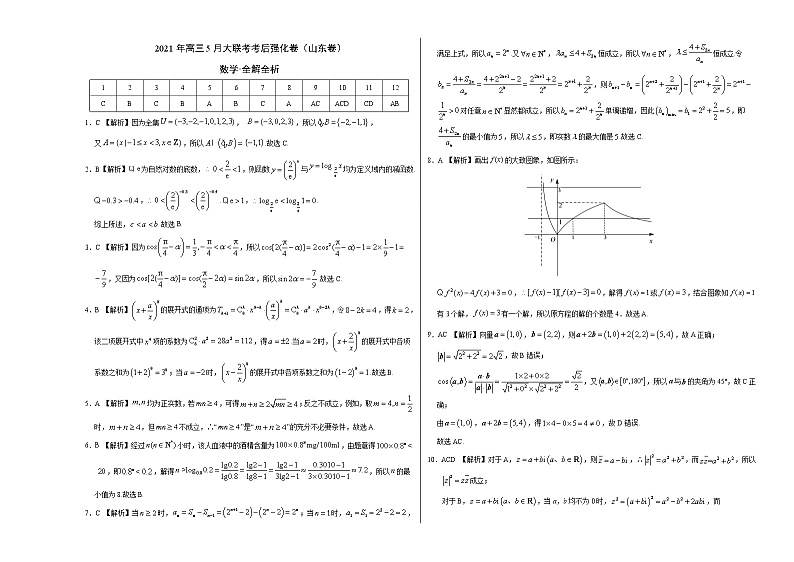 2021 年高三 5 月大联考考后强化卷（山东卷）
数学·全解全析
1 2 3 4 5 6 7 8 9 10 11 12
C B C B A B C A AC ACD CD AB
1．C 【解析】因为全集U={−3,−2,−1,0,1,2,3}， B={−3,0,2,3}，所以∁_U B={−2,−1,1}，
又 A={x|−1≤x<3,x∈Z}，所以A∩(∁_U B)={−1,1}.故选 C.
2．B【解析】∵e为自然对数的底数，∴0<2/e<1，则函数y=(2/e)^x与y=log_{2/e} x均为定义域内的减函数.
Q−0.3>−0.4，∴0<(2/e)^{−0.3}<(2/e)^{−0.4}. Qe>1，∴log_{2/e} e<log_{2/e} 1=0.
综上所述，c<a<b.故选 B.
3．C 【解析】因为cos(π/4−α)=1/3,−π/4<α<π/4，所以cos[2(π/4−α)]=2cos²(π/4−α)−1=2×1/9−1=
−7/9，又因为cos[2(π/4−α)]=cos(π/2−2α)=sin2α，所以sin2α=−7/9.故选 C.
4．B 【解析】(x+a/x)^8的展开式的通项为T_{k+1}=C_8^k·x^{8−k}·(a/x)^k=C_8^k·a^k·x^{8−2k}，令8−2k=4，得k=2，
该二项展开式中x⁴项的系数为C_8^2·a²=28a²=112，得a=±2.当a=2时，(x+2/x)^8的展开式中各项
系数之和为(1+2)^8=3^8；当a=−2时，(x−2/x)^8的展开式中各项系数之和为(1−2)^8=1.故选 B.
5．A 【解析】m,n均为正实数，若mn≥4，可得m+n≥2√mn≥4；反之不成立，例如，取m=4,n=1/2
时，m+n≥4，但mn≥4不成立，∴“mn≥4”是“m+n≥4”的充分不必要条件，故选 A.
6．B 【解析】经过n(n∈N*)小时，该人血液中的酒精含量为100×0.8^n mg/100ml，由题意得100×0.8^n<
20，即0.8^n<0.2，解得n>log_{0.8}0.2=lg0.2/lg0.8=(lg2−1)/(lg8−1)=(lg2−1)/(3lg2−1)≈(0.3010−1)/(3×0.3010−1)≈7.2，所以n的最
小值为 8.故选 B.
7．C 【解析】当n≥2时，a_n=S_n−S_{n−1}=(2^{n+1}−2)−(2^n−2)=2^n；当n=1时，a_1=S_1=2²−2=2，
满足上式，所以a_n=2^n.又∀n∈N*，λa_n≤4+S_{2n}恒成立，所以∀n∈N*，λ≤(4+S_{2n})/a_n恒成立.令
b_n=(4+S_{2n})/a_n=(4+2^{2n+1}−2)/2^n=(2^{2n+1}+2)/2^n=2^{n+1}+2/2^n，则b_{n+1}−b_n=(2^{n+2}+2/2^{n+1})−(2^{n+1}+2/2^n)=2^{n+1}−
1/2^n>0对任意n显然都成立，所以b_n=2^{n+1}+2/2^n单调递增，因此(b_n)_min=b_1=2²+2/2=5，即
(4+S_{2n})/a_n的最小值为5，所以λ≤5，即实数λ的最大值是5.故选 C.
8．A 【解析】画出f(x)的大致图象，如图所示：
y
2
1
−1 O 1 3 x
Qf²(x)−4f(x)+3=0，∴[f(x)−1][f(x)−3]=0，解得f(x)=1或f(x)=3，结合图象知f(x)=1
有3个解，f(x)=3有一个解，所以原方程的解的个数是4．故选 A.
9．AC 【解析】向量a=(1,0)，b=(2,2)，则a+2b=(1,0)+2(2,2)=(5,4)，故 A 正确；
|b|=√(2²+2²)=2√2，故 B 错误；
cos⟨a,b⟩=a·b/(|a|·|b|)=(1×2+0×2)/(√(1²+0²)×√(2²+2²))=√2/2，又⟨a,b⟩∈[0°,180°]，所以a与b的夹角为45°，故 C 正
确；
由a=(1,0)，a+2b=(5,4)，得1×4−0×5=4≠0，故 D 错误.
故选 AC.
10．ACD 【解析】对于 A，z=a+bi(a、b∈R)，则z̄=a−bi，∴|z|²=a²+b²，而zz̄=a²+b²，所以
|z|²=zz̄成立；
对于 B，z=a+bi(a、b∈R)，当a，b均不为0时，z²=(a+bi)²=a²−b²+2abi，而